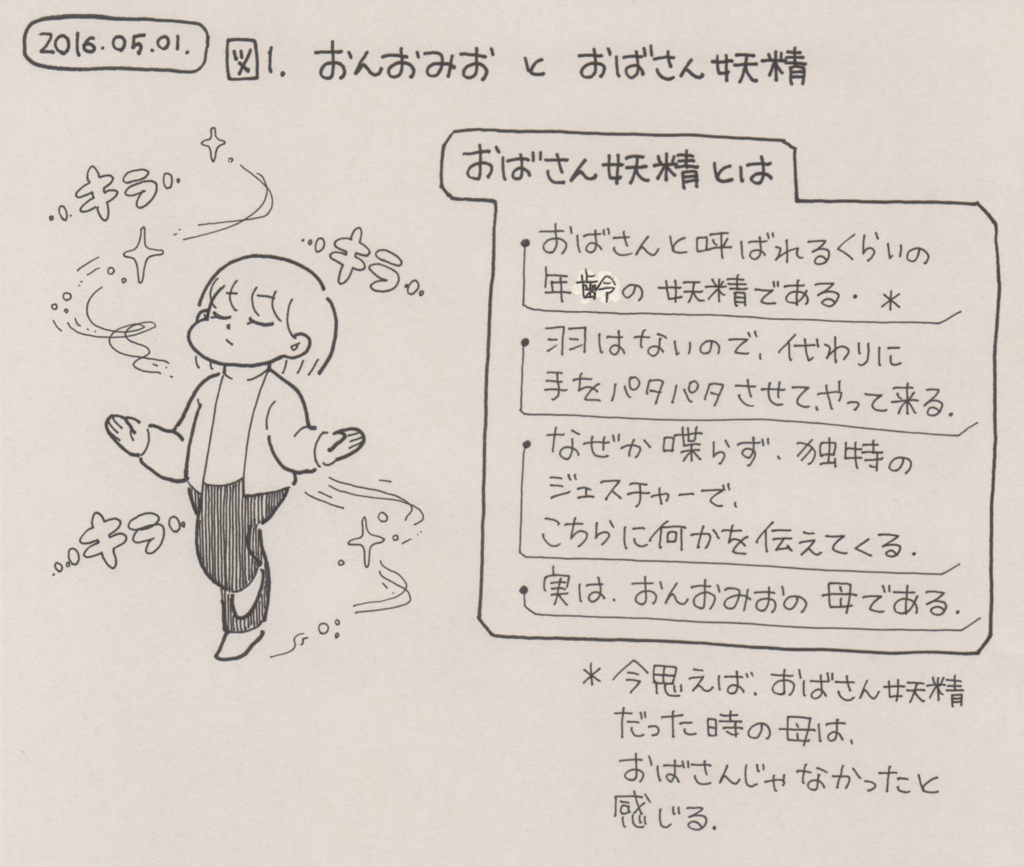 2016.05.01.
図1. おんおみお と おばさん妖精
キラ
キラ
キラ
おばさん妖精とは
• おばさんと呼ばれるくらいの
年齢の妖精である. *
• 羽はないので、代わりに
手をパタパタさせて、やって来る.
• なぜか喋らず、独特の
ジェスチャーで、
こちらに何かを伝えてくる.
• 実は、おんおみおの母である.
* 今思えば、おばさん妖精
だった時の母は、
おばさんじゃなかったと
感じる.